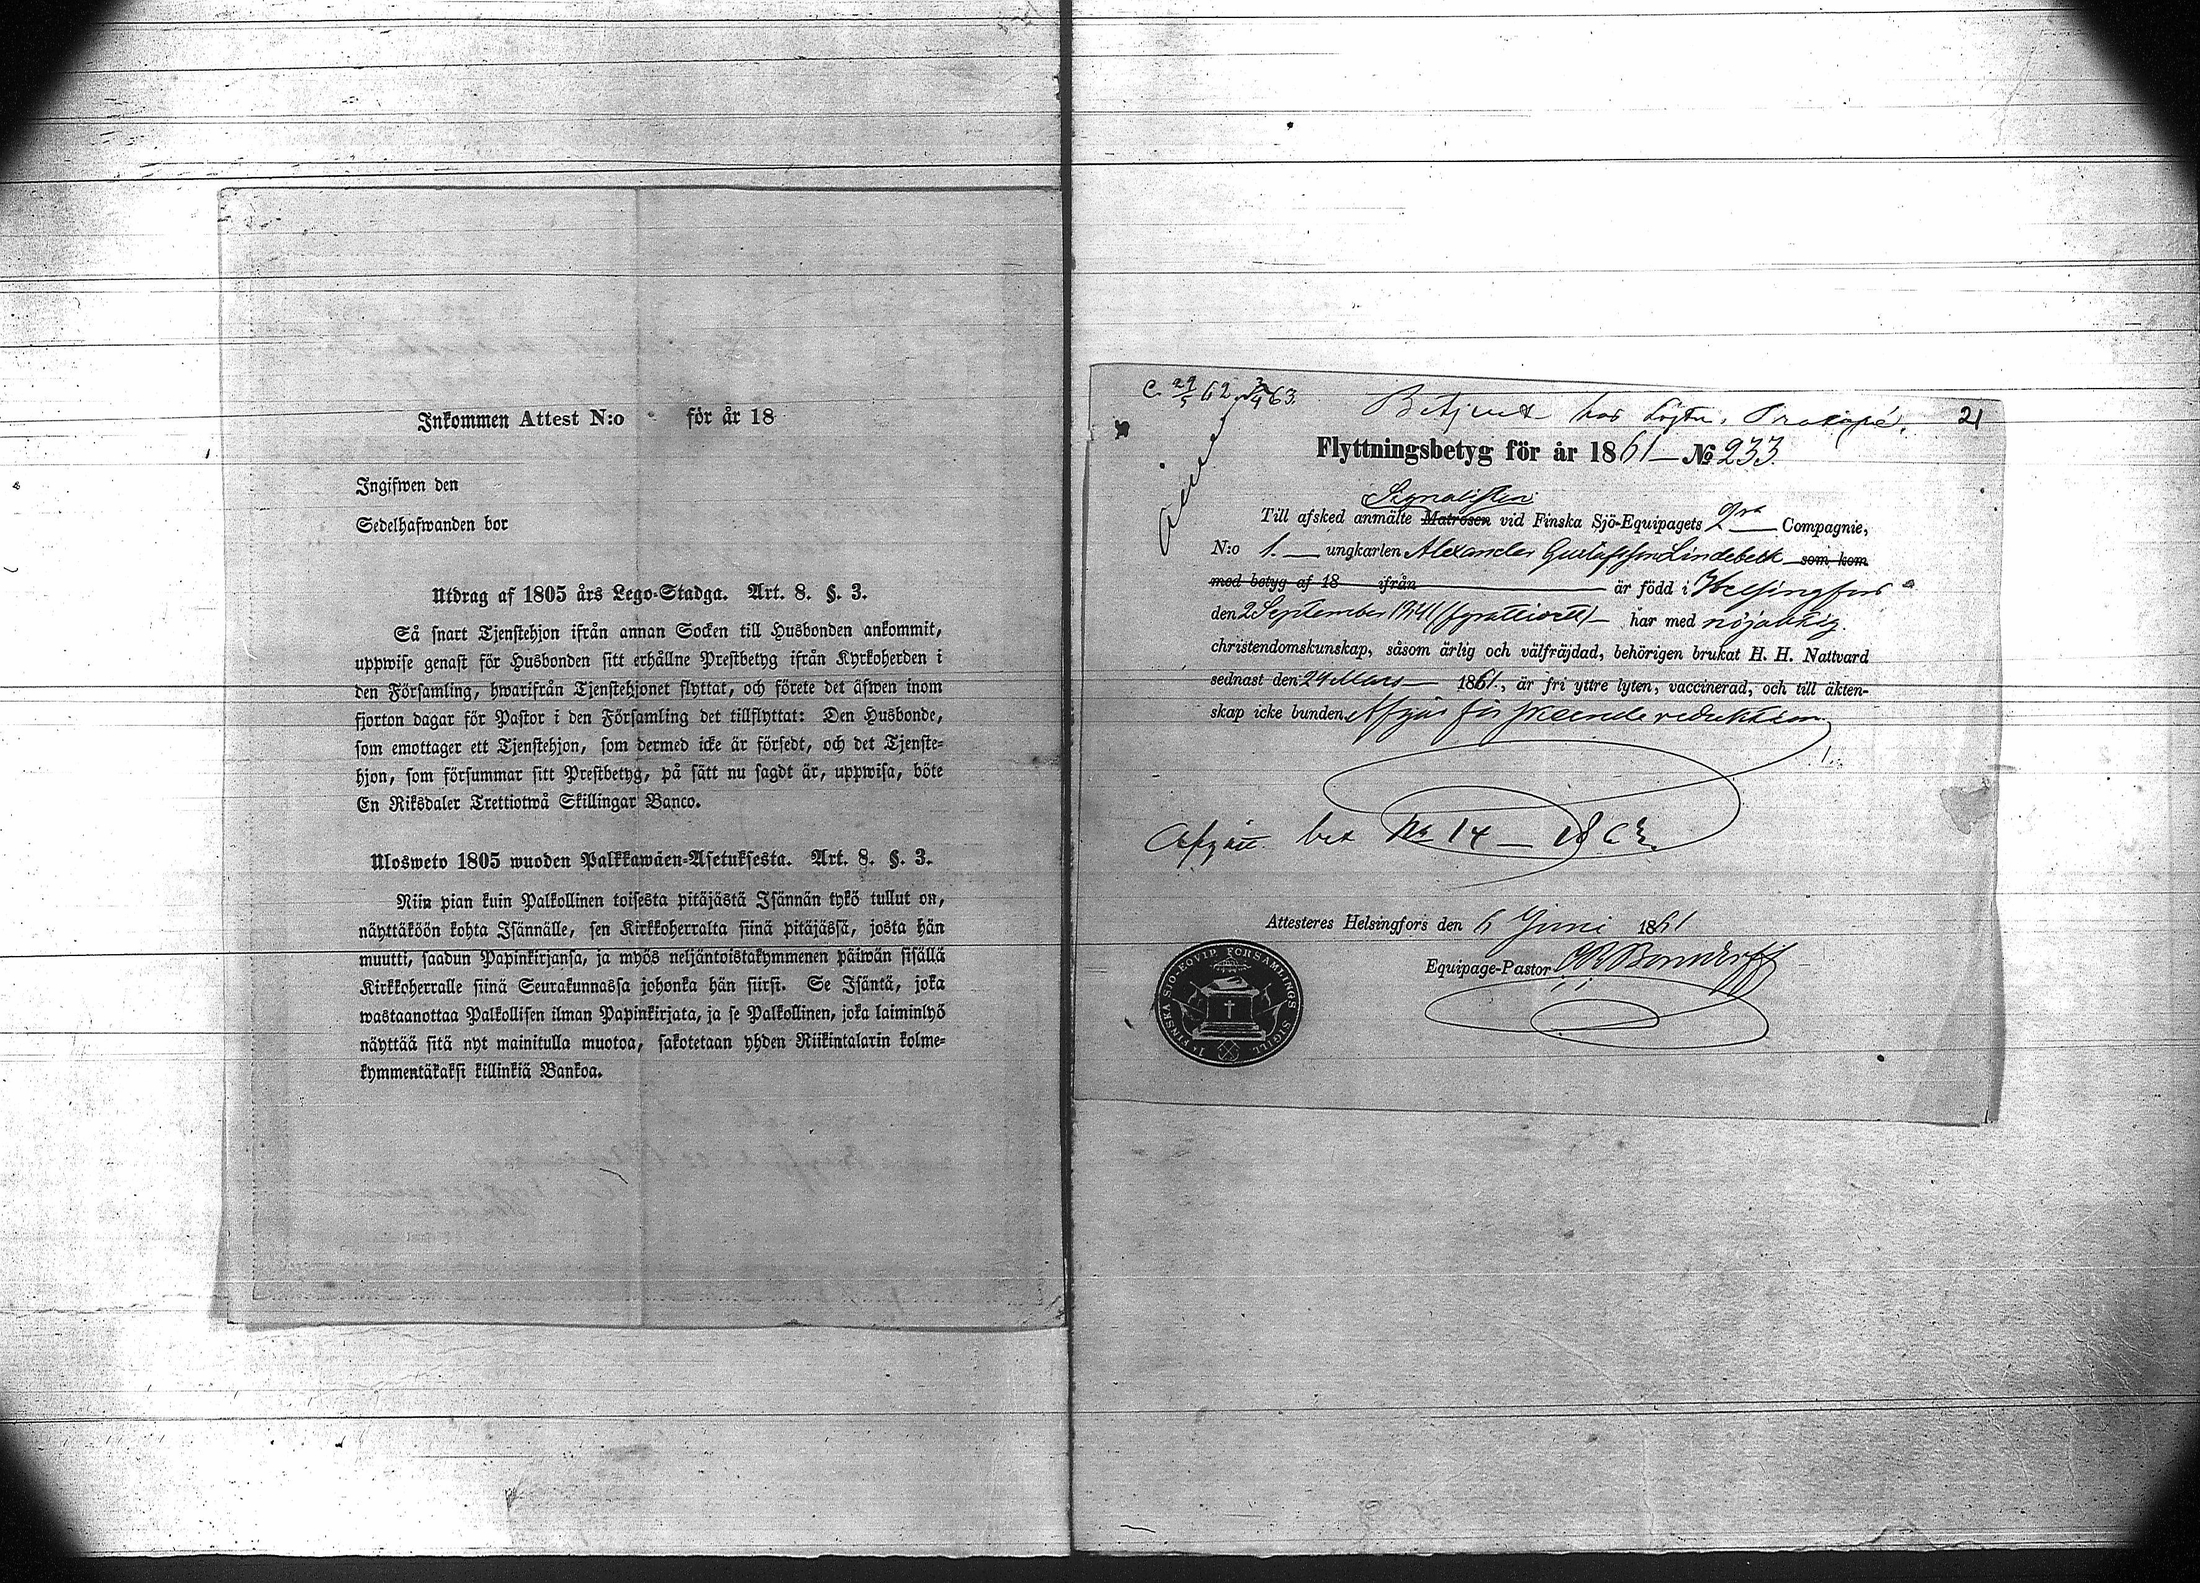 Inkommen Attest N:o för år 18
Ingifwen den
Sedelhafwanden bor
Utdrag af 1805 års Lego-Stadga. Art. 8. §. 3.
Så snart Tjenstehjon ifrån annan Socken till Husbonden ankommit,
uppwise genast för Husbonden sitt erhållne Prestbetyg ifrån Kyrkoherden i
den Församling, hwarifrån Tjenstehjonet flyttat, och förete det äfwen inom
fjorton dagar för Pastor i den Församling det tillflyttat: Den Husbonde,
som emottager ett Tjenstehjon, som dermed icke är försedt, och det Tjenste-
hjon, som försummar sitt Prestbetyg, på sätt nu sagdt är, uppwisa, böte
En Riksdaler Trettiotwå Skillingar Banco.
Ulosweto 1805 wuoden Palkkawäen-Asetuksesta. Art. 8. §. 3.
Niin pian kuin Palkollinen toisesta pitäjästä Isännän tykö tullut on,
näyttäköön kohta Isännälle, sen Kirkkoherralta siinä pitäjässä, josta hän
muutti, saadun Papinkirjansa, ja myös neljäntoistakymmenen päiwän sisällä
Kirkkoherralle siinä Seurakunnassa johonka hän siirsi. Se Isäntä, joka
wastaanottaa Palkollisen ilman Papinkirjata, ja se Palkollinen, joka laiminlyö
näyttää sitä nyt mainitulla muotoa, sakotetaan yhden Riikintalarin kolme-
kymmentäkaksi killinkiä Bankoa.
C. 29/5 62 3/4 63.
Betjent hos Löjtn. Prokopé. 21
Flyttningsbetyg för år 1861 — No 233.
Signalisten
Till afsked anmälte Matrosen vid Finska Sjö-Equipagets 2ra Compagnie,
N:o 1. — ungkarlen Alexander Gustafsson Lindebeck som kom
med betyg af 18 ifrån är född i Helsingfors
den 2 September 1841 (fyratioett) — har med nöjaktig
christendomskunskap, såsom ärlig och välfräjdad, behörigen brukat H. H. Nattvard
sednast den 24 Mars — 1861., är fri yttre lyten, vaccinerad, och till äkten-
skap icke bunden. Afgår för skeende reduktion
Afgått bet No 14 —
Attesteres Helsingfors den 6 Juni 1861
Equipage-Pastor
1. FINSKA SJÖ-EQVIP. FÖRSAMLINGS SIGILL